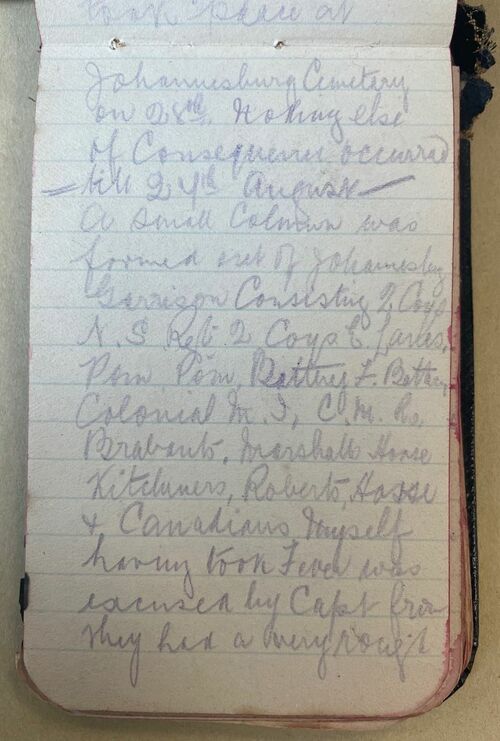 took place at
Johannesburg Cemetery
on 28th. Nothing else
of Consequence occurred
till 24th August
A small Column was
formed out of Johannesbg
Garrison Consisting 2 Coys
N. S. Rgt. 2 Coys E. Lancs,
Pom Pom, Battery F. Battery
Colonial M. I, C. M. R,
Brabants, Marshalls Horse
Kitcheners, Roberts, Horse
& Canadians Myself
having took Fever was
excused by Capt from
They had a very rough